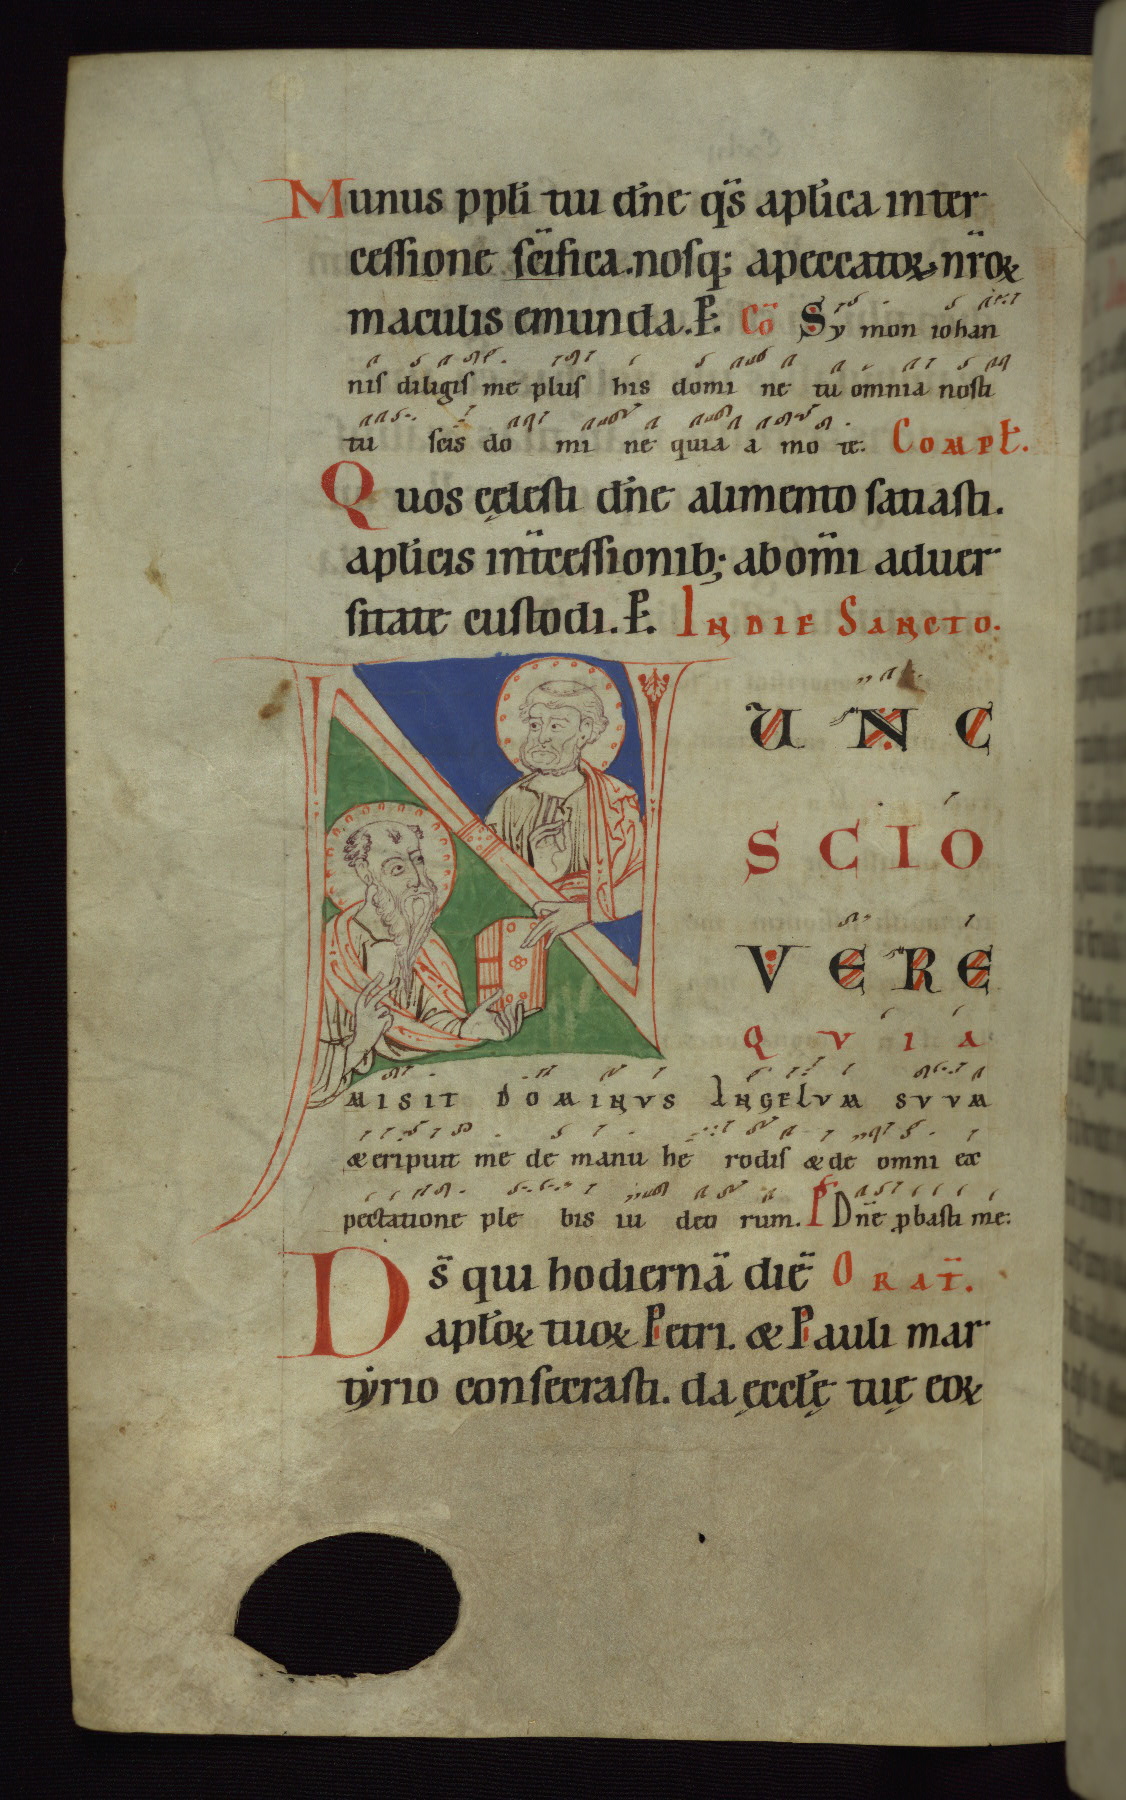 Munus ppłi tui dn̄e qs̄ apłica inter
cessione scīfica. nosq; apeccatoꝝ nr̄oꝝ
maculis emunda. P. Cō Sy mon iohan
nis diligis me plus his domi ne tu omnia nosti
tu scis do mi ne quia a mo te. Compł.
Quos cęlesti dn̄e alimento satiasti.
apłicis int̄cessionib; abom̄i aduer
sitate custodi. P. In die Sancto.
N UNC
SCIO
VERE
QVIA
MISIT DOMINVS ANGELVM SVVM
& eripuit me de manu he rodis & de omni ex
pectatione ple bis iu deo rum. P Dn̄e ꝓbasti me:
Ds̄ qui hodiernā diē Orat̄.
apłoꝝ tuoꝝ Petri. & Pauli mar
tẏrio consecrasti. da ęccłę tuę eoꝝ